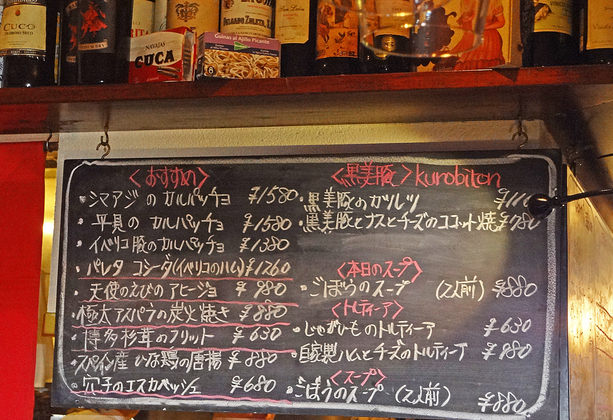 CUCO
NAVAJAS
CUCA
Gulas al Ajillo Picante
〈おすすめ〉
・シマアジのカルパッチョ ¥1580
・平貝のカルパッチョ ¥1580
・イベリコ豚のカルパッチョ ¥1380
・パレタ コシーダ(イベリコのハム) ¥1260
・天使のえびのアヒージョ ¥980
・極太アスパラの炭火焼き ¥880
・博多杉茸のフリット ¥630
・スペイン産 ひな鶏の唐揚 ¥880
・穴子のエスカベッシュ ¥680
〈黒美豚〉kurobiton
・黒美豚のガルツ
・黒美豚とナスとチーズのココット焼 ¥780
〈本日のスープ〉
・ごぼうのスープ (2人前) ¥880
〈トルティーア〉
・じゃがいものトルティーア ¥630
・自家製ハムとチーズのトルティーア ¥880
〈スープ〉
・ごぼうのスープ (2人前) ¥880